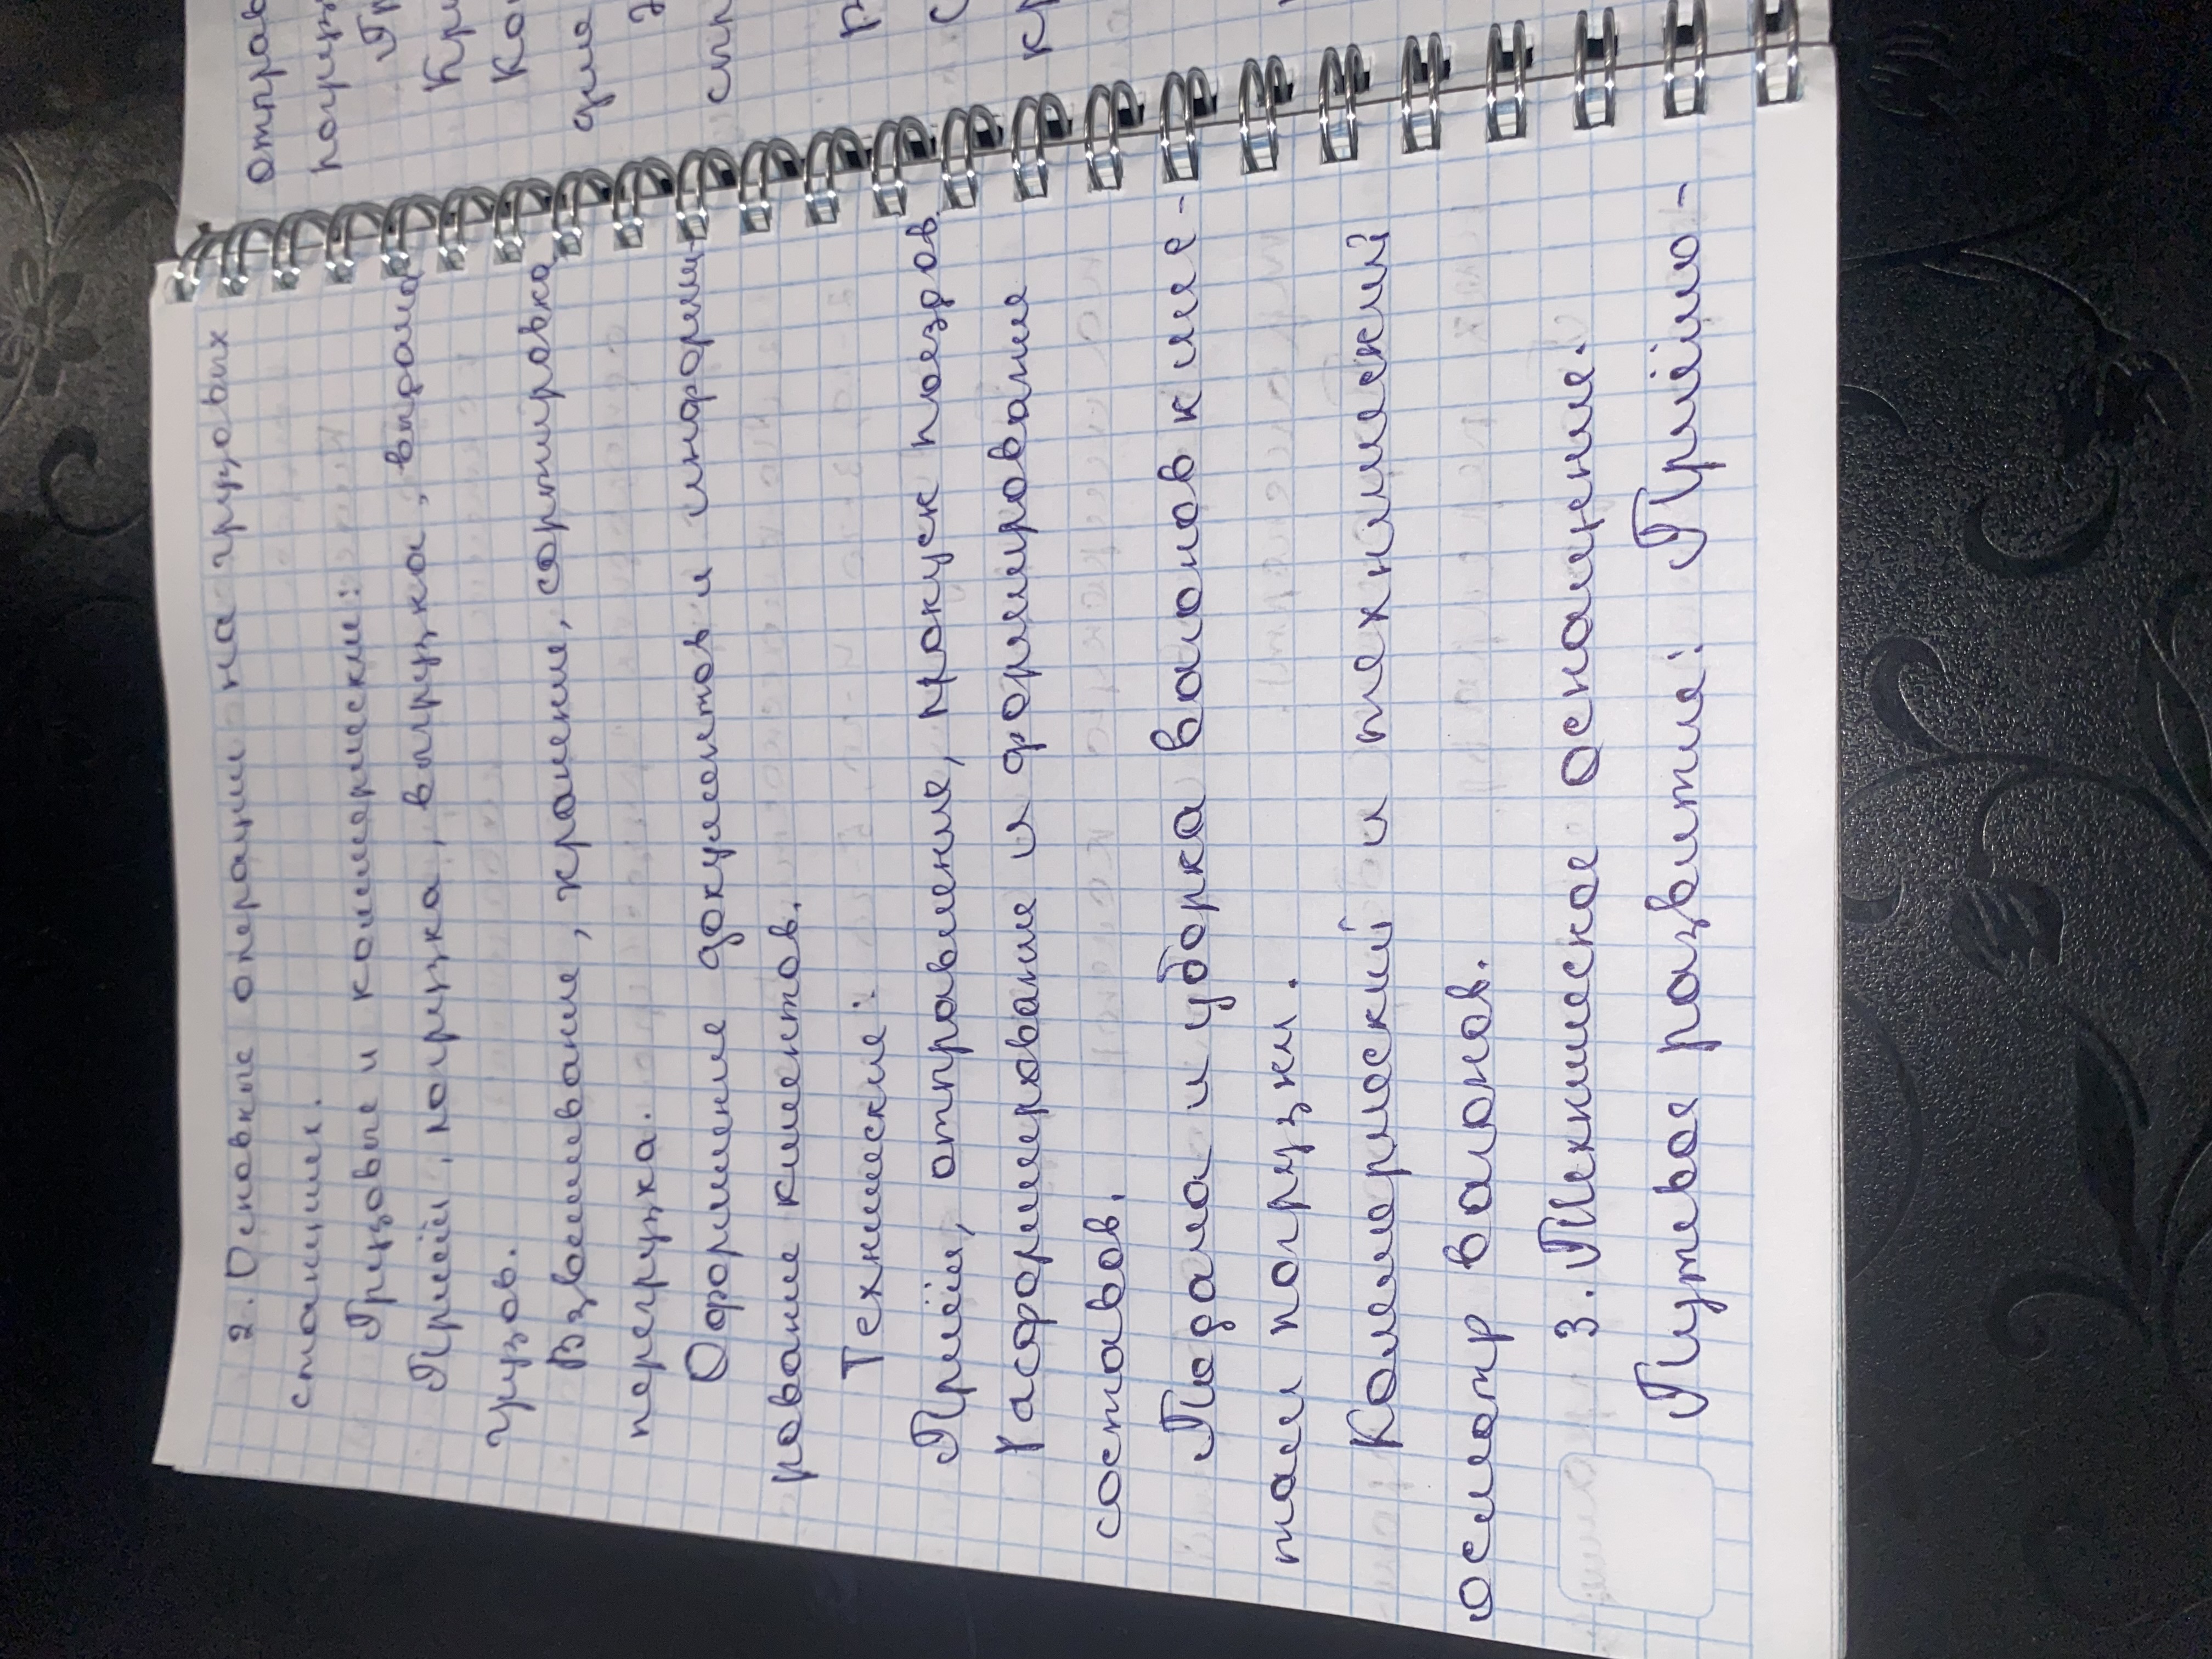 2. Основные операции на грузовых
станциях.
Грузовые и коммерческие:
Приём, погрузка, выгрузка, выдача
грузов.
Взвешивание, хранение, сортировка
перегрузка.
Оформление документов и информи-
рование клиентов.
Технические:
Приём, отправление, пропуск поездов
Расформирование и формирование
составов.
Подача и уборка вагонов к ме-
там погрузки.
Коммерческий и технический
осмотр вагонов.
3. Техническое оснащение.
Путевое развитие: Приёмо-
отправ
погруз